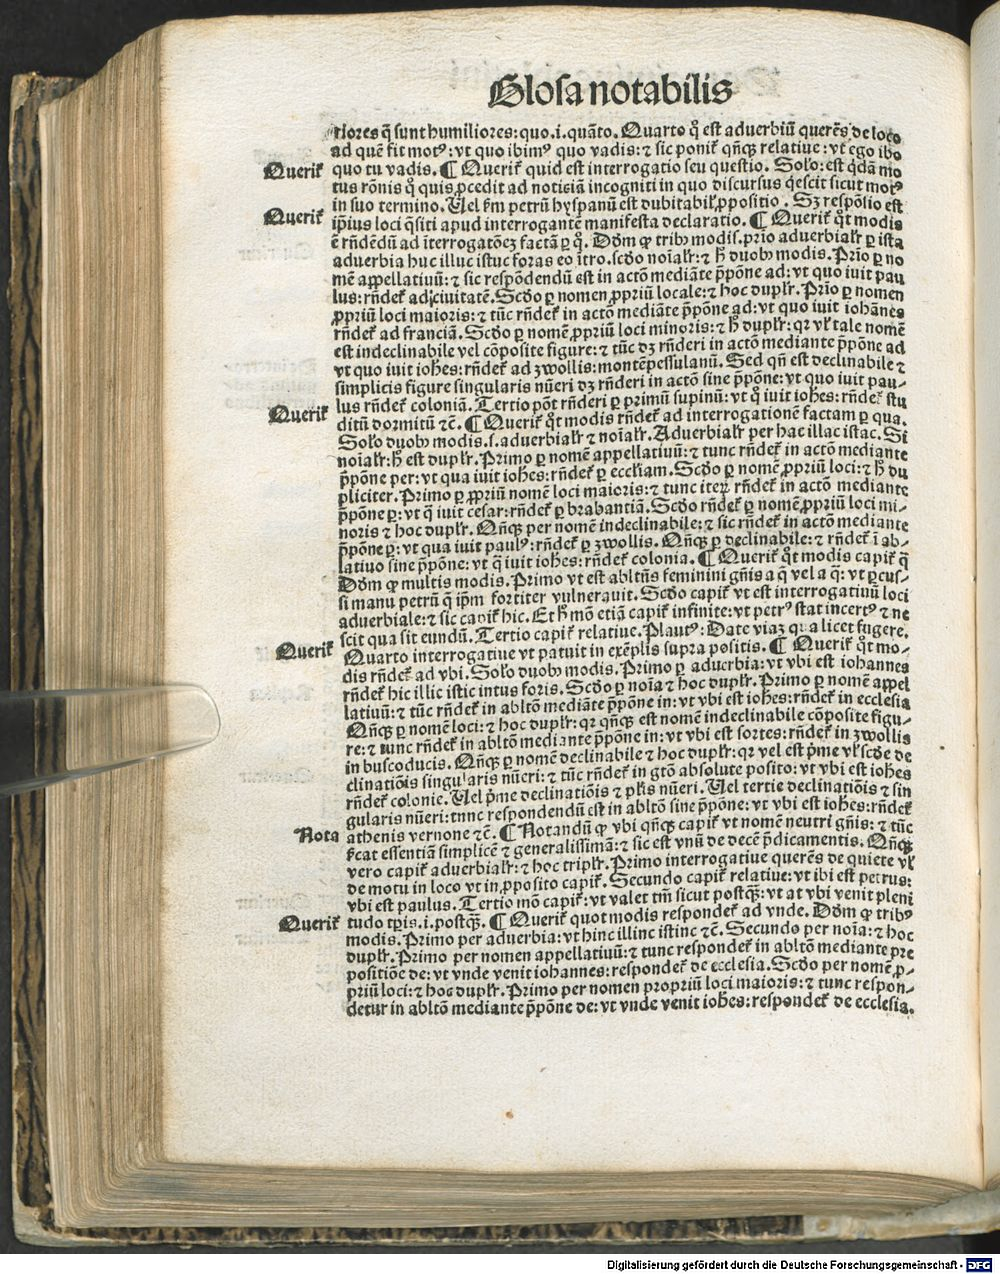 Glosa notabilis
riores q̄ sunt humiliores: quo.i.quāto. Quarto qͦ est aduerbiū querēs de loco
ad quē fit motꝰ: vt quo ibimꝰ quo vadis: ⁊ sic poniť qn̄qꝫ relatiue: vt ego ibo
Queriť
quo tu vadis. ¶ Queriť quid est interrogatio seu questio. Solo: est qͣdā mo
tus rōnis qͦ quis ꝓcedit ad noticiā incogniti in quo discursus qͥescit sicut motꝰ
in suo termino. Uel ẜm petrū hyspanū est dubitabiľ ꝓpositio. Sꝫ respōsio est
Queriť
ip̄ius loci q̄siti apud interrogantē manifesta declaratio. ¶ Queriť qͦt modis
ē rn̄dēdū ad īterrogatōeꝫ factā ꝑ qͦ. Dōm ꝙ tribꝰ modis. prīo aduerbialľ ꝑ ista
aduerbia huc illuc istuc foras eo ītro. scdo noīalľ: ⁊ ħ duobꝰ modis. Prīo ꝑ no
mē appellatiuū: ⁊ sic respōdendū est in actō mediāte p̄pōne ad: vt quo iuit pau
lus: rn̄deť ad ciuitatē. Scdo ꝑ nomen ꝓpriū locale: ⁊ hoc dupľr. Prīo ꝑ nomen
ꝓpriū loci maioris: ⁊ tūc rn̄deť in actō mediāte p̄pōne ad: vt quo iuit iohānes
rn̄deť ad franciā. Scdo ꝑ nomē ꝓpriū loci minoris: ⁊ ħ dupľr: qr vľ tale nomē
est indeclinabile vel cōposite figure: ⁊ tūc dꝫ rn̄deri in actō mediante p̄pōne ad
vt quo iuit ioħes: rn̄deť ad zwollis: montēpessulanū. Sed qn̄ est declinabile ⁊
simplicis figure singularis nūeri dꝫ rn̄deri in actō sine p̄pōne: vt quo iuit pau-
Queriť
lus rn̄deť coloniā. Tertio pōt rn̄deri ꝑ primū supinū: vt qͦ iuit ioħes: rn̄deť stu
ditū dormitū ⁊c. ¶ Queriť qͦt modis rn̄deť ad interrogationē factam ꝑ qua.
Solo duobꝰ modis.s.aduerbialľ ⁊ noīalľ. Aduerbialľ per hac illac istac. Si
noīalľ: ħ est dupľr. Primo ꝑ nomē appellatiuū: ⁊ tunc rn̄deť in actō mediante
p̄pōne per: vt qua iuit ioħes: rn̄deť ꝑ eccľiam. Scdo ꝑ nomē ꝓpriū loci: ⁊ ħ du
pliciter. Primo ꝑ ꝓpriū nomē loci maioris: ⁊ tunc iteꝝ rn̄deť in actō mediante
p̄pōne ꝑ: vt qͣ iuit cesar: rn̄deť ꝑ brabantiā. Scdo rn̄deť ꝑ nomē ꝓpriū loci mi-
noris ⁊ hoc dupľr. Qn̄qꝫ per nomē indeclinabile: ⁊ sic rn̄deť in actō mediante
p̄pōne ꝑ: vt qua iuit paulꝰ: rn̄deť ꝑ zwollis. Qn̄qꝫ ꝑ declinabile: ⁊ rn̄deť ī ab-
latiuo sine p̄pōne: vt qͣ iuit ioħes: rn̄deť colonia. ¶ Queriť qͦt modis capiť qͣ
Dōm ꝙ multis modis. Primo vt est abltūs feminini gn̄is a qͥ vel a q̄: vt ꝑcus-
si manu petrū qͣ ip̄m fortiter vulnerauit. Scdo capiť vt est interrogatiuū loci
aduerbiale: ⁊ sic capiť hic. Et ħ mō etiā capiť infinite: vt petrꝰ stat incertꝰ ⁊ ne
scit qua sit eundū. Tertio capiť relatiue. Plautꝰ: Date viaꝫ qua licet fugere.
Queriť
Quarto interrogatiue vt patuit in exēplis supra positis. ¶ Queriť qͦt mo-
dis rn̄deť ad vbi. Solo duobꝰ modis. Primo ꝑ aduerbia: vt vbi est iohannes
rn̄deť hic illic istic intus foris. Scdo ꝑ noīa ⁊ hoc dupľr. Primo ꝑ nomē appel
latiuū: ⁊ tūc rn̄deť in abltō mediāte p̄pōne in: vt vbi est ioħes: rn̄deť in ecclesia
Qn̄qꝫ ꝑ nomē loci: ⁊ hoc dupľr: qr qn̄qꝫ est nomē indeclinabile cōposite figu-
re: ⁊ tunc rn̄deť in abltō mediante p̄pōne in: vt vbi est sortes: rn̄deť in zwollis
in buscoducis. Qn̄qꝫ ꝑ nomē declinabile ⁊ hoc dupľr: qr vel est p̄me vľ scd̄e de
clinatiōis singularis nūeri: ⁊ tūc rn̄deť in gtō absolute posito: vt vbi est ioħes
rn̄deť colonie. Uel p̄me declinatiōis ⁊ pľis nūeri. Uel tertie declinatiōis ⁊ sin
gularis nūeri: tunc respondendū est in abltō sine p̄pōne: vt vbi est ioħes: rn̄deť
Nota
athenis vernone ⁊c. ¶ Notandū ꝙ vbi qn̄qꝫ capiť vt nomē neutri gn̄is: ⁊ tūc
ẜcat essentiā simplicē ⁊ generalissimā: ⁊ sic est vnū de decē p̄dicamentis. Qn̄qꝫ
vero capiť aduerbialľ: ⁊ hoc tripľr. Primo interrogatiue querēs de quiete vľ
de motu in loco vt in ꝓposito capiť. Secundo capiť relatiue: vt ibi est petrus:
vbi est paulus. Tertio mō capiť: vt valet tm̄ sicut postqͣꝫ: vt at vbi venit pleni
Queriť
tudo tp̄is.i.postqͣꝫ. ¶ Queriť quot modis respondeť ad vnde. Dōm ꝙ tribꝰ
modis. Primo per aduerbia: vt hinc illinc istinc ⁊c. Secundo per noīa: ⁊ hoc
dupľr. Primo per nomen appellatiuū: ⁊ tunc respondeť in abltō mediante pre
positiōe de: vt vnde venit iohannes: respondeť de ecclesia. Scdo per nomē ꝓ-
priū loci: ⁊ hoc dupľr. Primo per nomen propriū loci maioris: ⁊ tunc respon-
detur in abltō mediante p̄pōne de: vt vnde venit ioħes: respondeť de ecclesia.
Digitalisierung gefördert durch die Deutsche Forschungsgemeinschaft - DFG